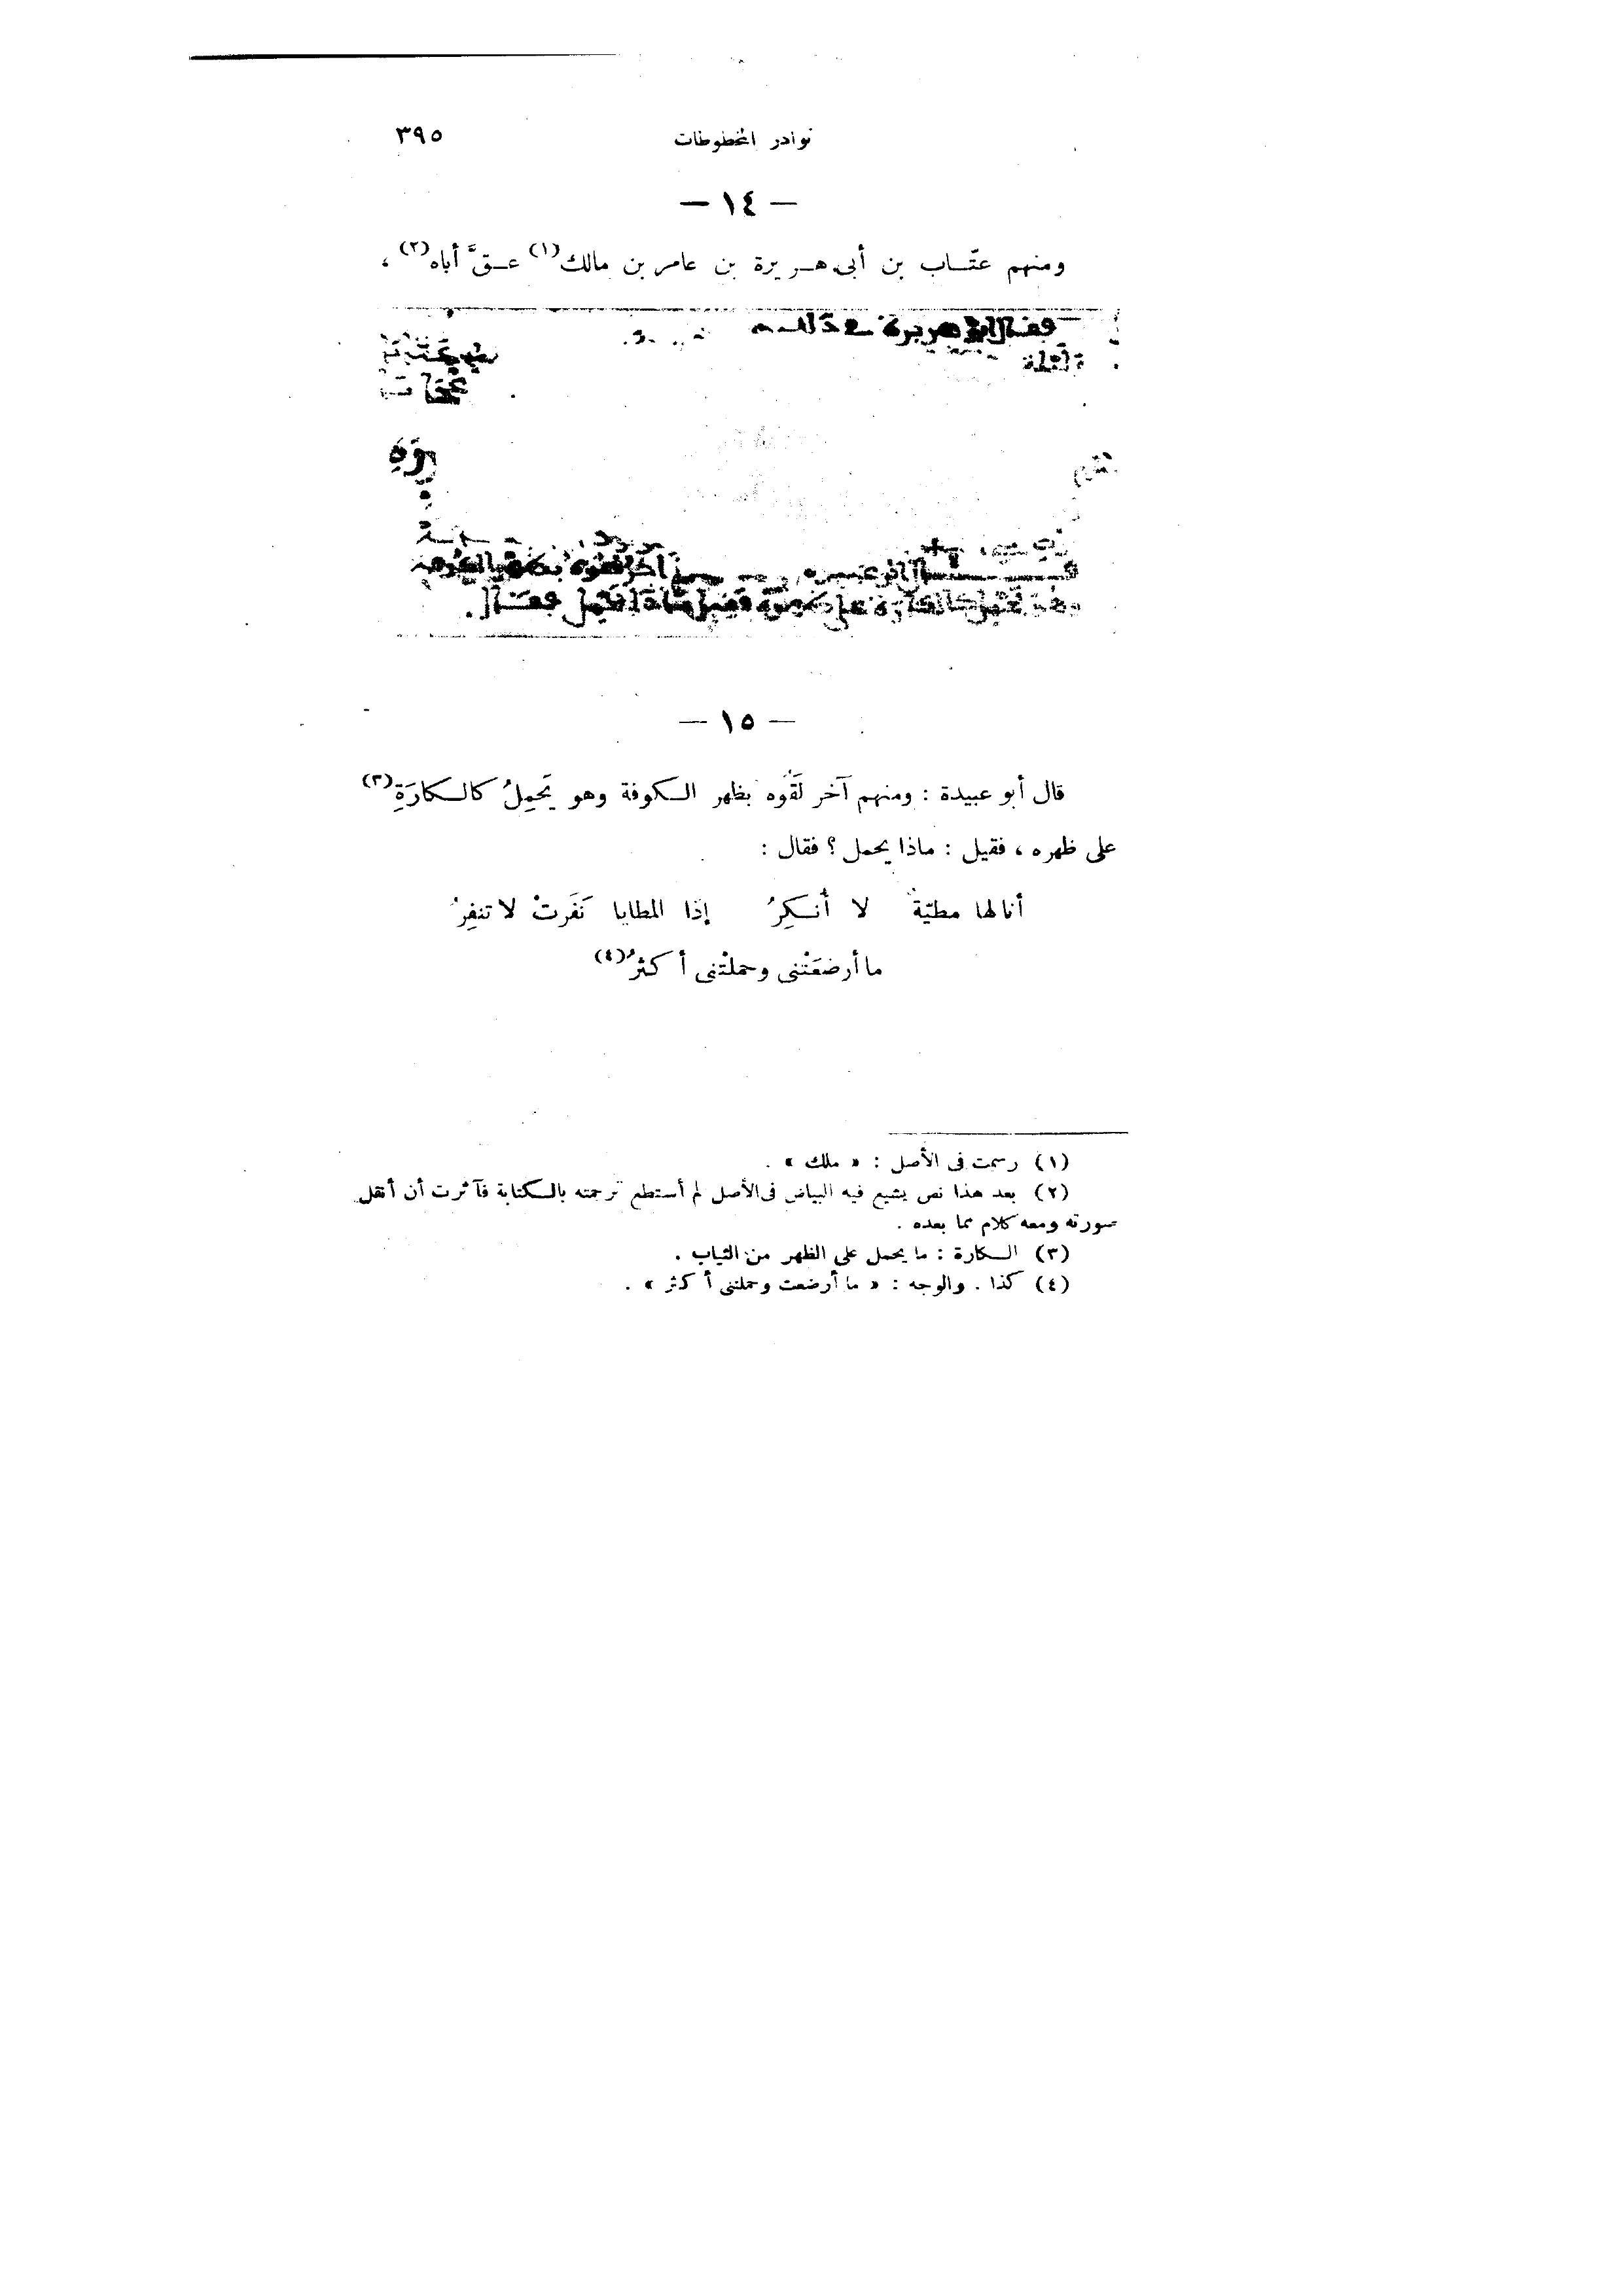 نوادر المخطوطات ٣٩٥
— ١٤ —
ومنهم عتّاب بن أبى هريرة بن عامر بن مالك(١) عقَّ أباه(٢) ،
فقال ابو هريرة فى ذلك
قال ابو عبيده آخر لقوه بظهر الكوفة
وهو يحمل كالكارة على ظهره فقيل ماذا يحمل فقال
— ١٥ —
قال أبو عبيدة : ومنهم آخر لَقُوه بظهر الكوفة وهو يَحمِلُ كالكارَةِ(٣)
على ظهره ، فقيل : ماذا يحمل ؟ فقال :
أنا لها مطيّة لا أُنكِرُ إذا المطايا نَفَرتْ لا تنفِرُ
ما أرضعَتْنى وحملتْنى أكثرُ(٤)
(١) رسمت فى الأصل : « ملك » .
(٢) بعد هذا نص يشيع فيه البياض فى الأصل لم أستطع ترجمته بالكتابة فآثرت أن أنقل
صورته ومعه كلام مما بعده .
(٣) الكارة : ما يحمل على الظهر من الثياب .
(٤) كذا . والوجه : « ما أرضعت وحملتنى أكثر » .